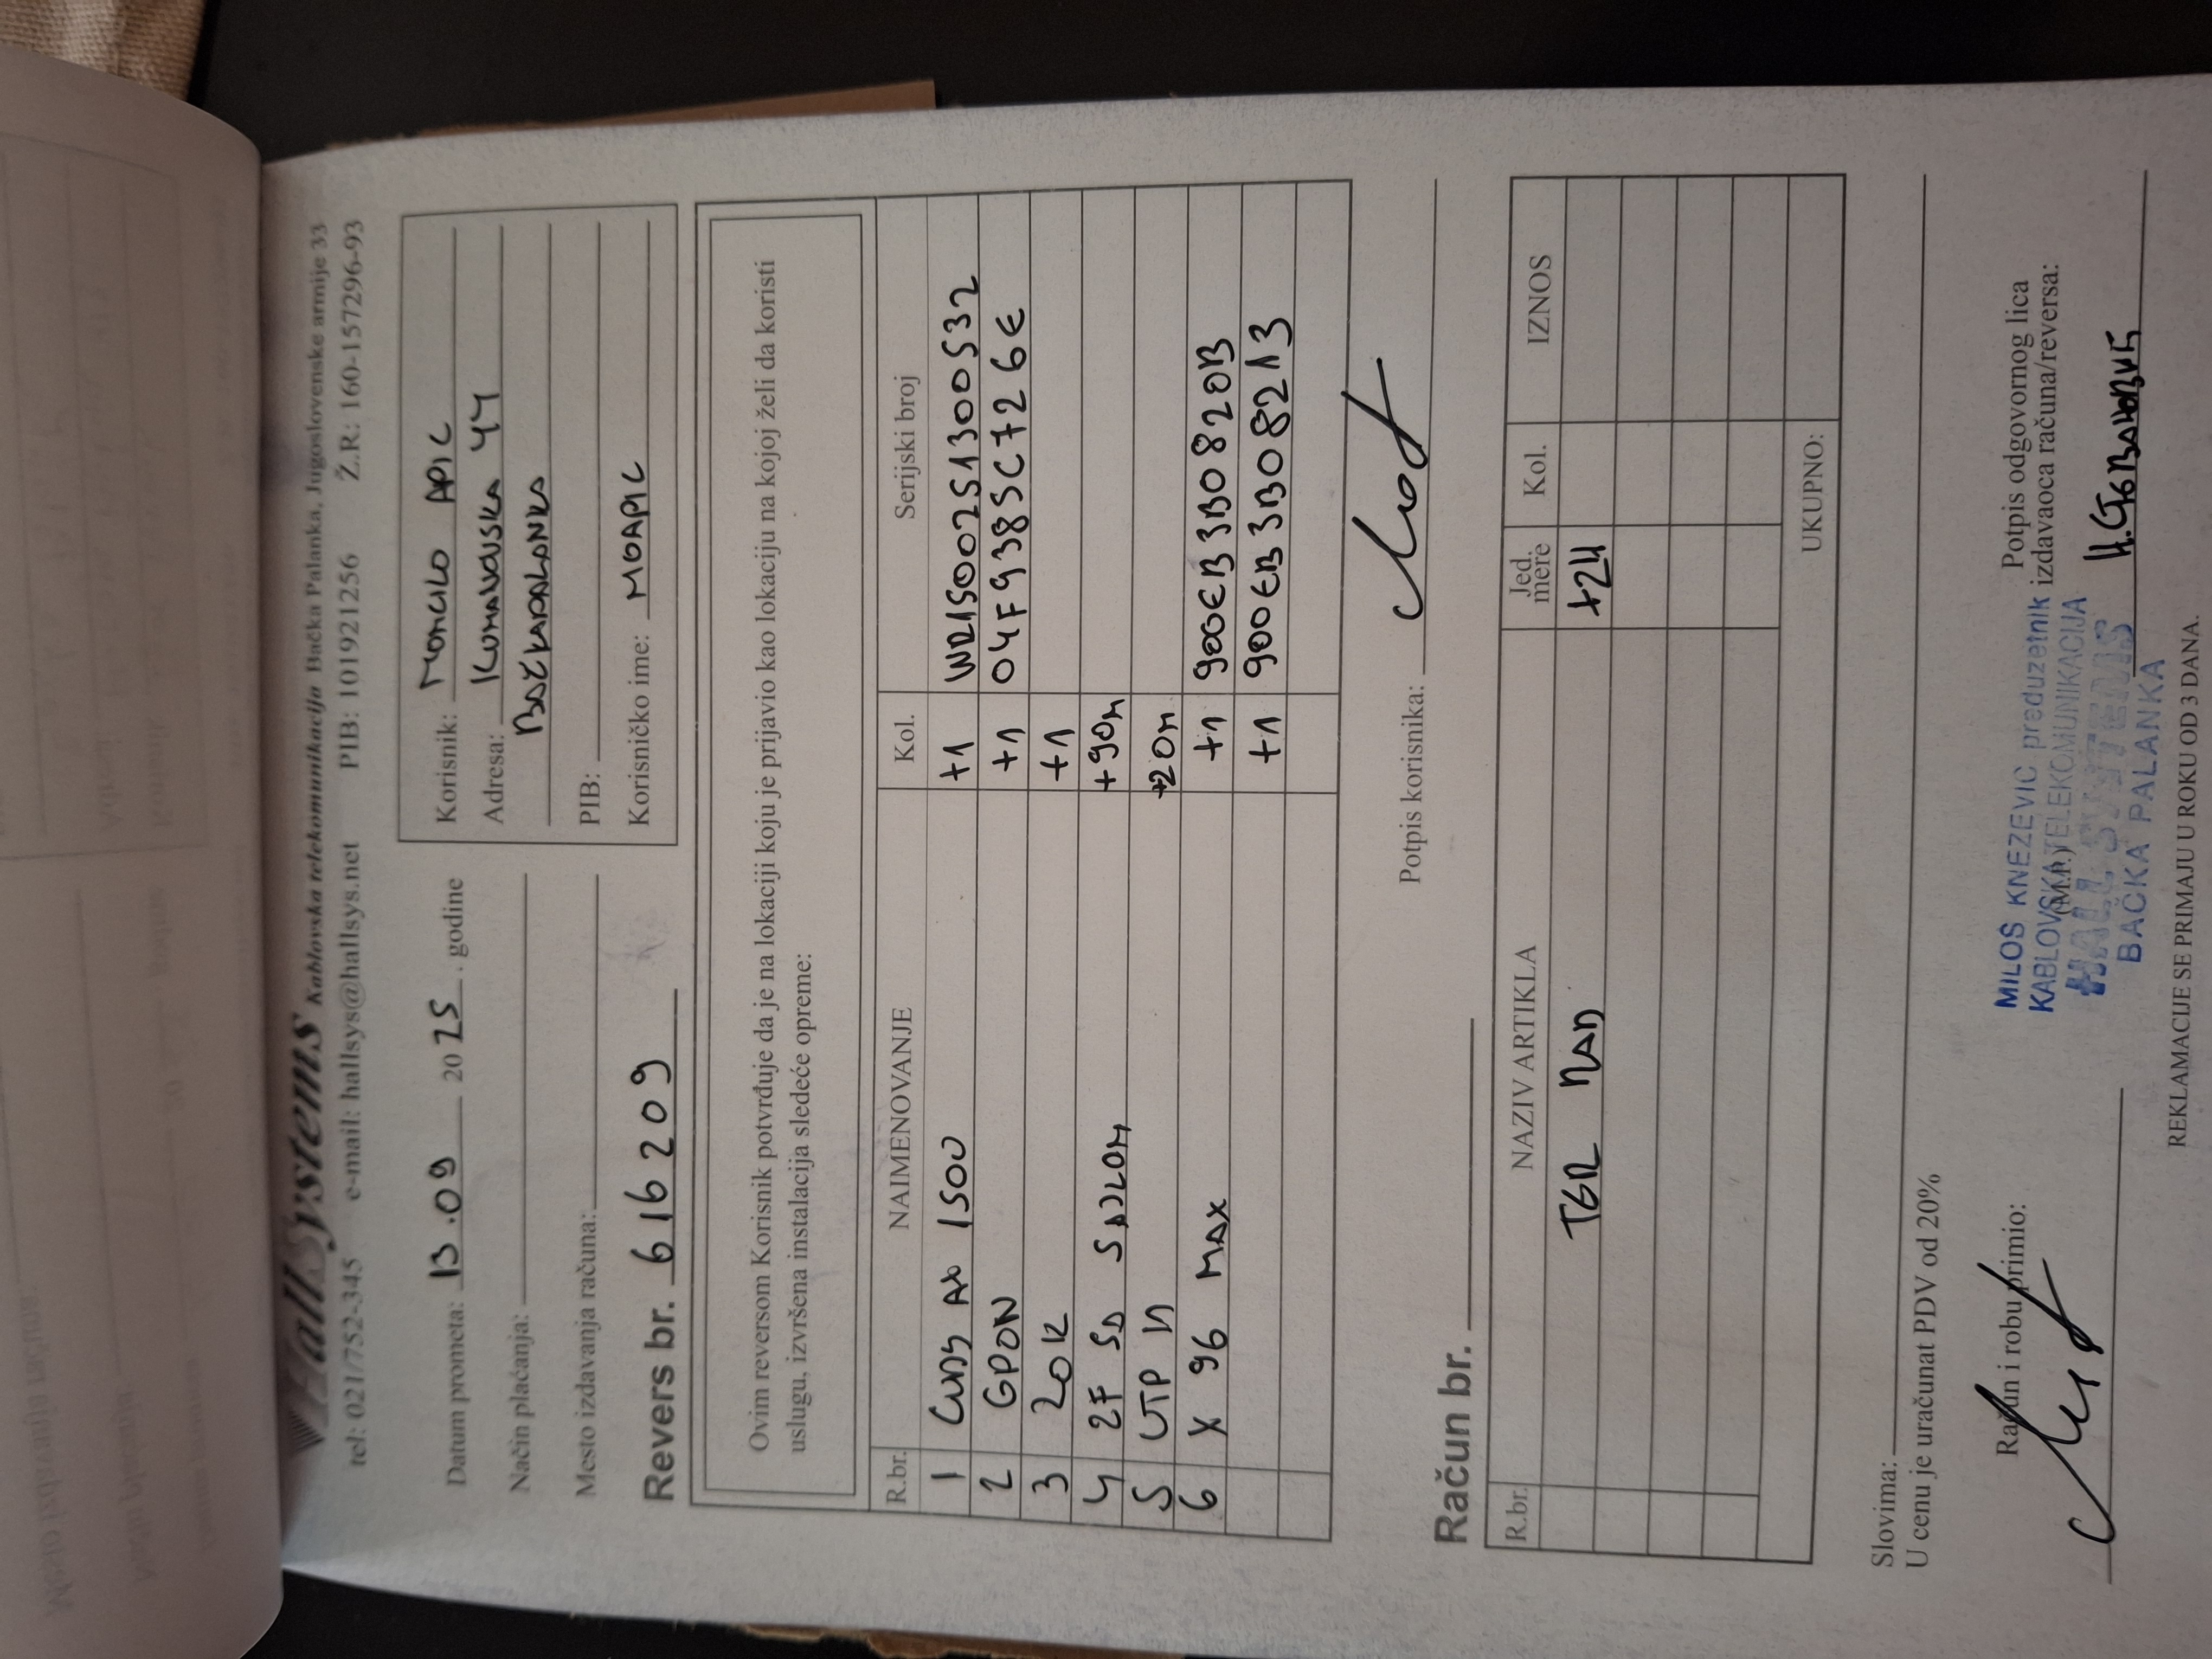 HallSystems Kablovska telekomunikacija Bačka Palanka, Jugoslovenske armije 33
tel: 021/752-345 e-mail: hallsys@hallsys.net PIB: 101921256 Ž.R.: 160-157296-93
Datum prometa: 13.09 2025. godine
Način plaćanja:
Mesto izdavanja računa:
Revers br. 616209
Korisnik: MOMCILO APIC
Adresa: KUMANOVSKA 44
BAČKA PALANKA
PIB:
Korisničko ime: MOAPIC
Ovim reversom Korisnik potvrđuje da je na lokaciji koju je prijavio kao lokaciju na kojoj želi da koristi
uslugu, izvršena instalacija sledeće opreme:
R.br. NAIMENOVANJE Kol. Serijski broj
1 CUDY AX 1500 +1 WR15002S1300532
2 GPON +1 04F9385C726E
3 ZOK +1
4 2F SA SAJLOM +90m
5 UTP U +20m
6 X 96 MAX +1 900EB3B0820B
+1 900EB3B08213
Potpis korisnika:
Račun br.
R.br. NAZIV ARTIKLA Jed. mere Kol. IZNOS
TER RAD +2H
UKUPNO:
Slovima:
U cenu je uračunat PDV od 20%
Račun i robu primio:
(M.P.)
Potpis odgovornog lica
izdavaoca računa/reversa:
MILOŠ KNEZEVIC preduzetnik
KABLOVSKA TELEKOMUNIKACIJA
HALL SYSTEMS
BAČKA PALANKA
REKLAMACIJE SE PRIMAJU U ROKU OD 3 DANA.